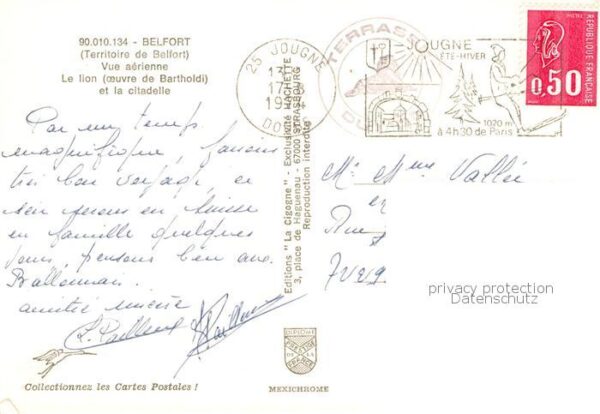 90.010.134 - BELFORT
(Territoire de Belfort)
Vue aérienne
Le lion (œuvre de Bartholdi)
et la citadelle
Par un temps
magnifique, faisons
très bon voyage, ce
soir serons en Suisse
en famille quelques
jours, pensons bien aux
amitié sincère
Editions "La Cigogne" - Exclusivité HACHETTE
3, place de Haguenau - 67000 STRASBOURG
Reproduction interdite
25 JOUGNE
13 H
17
19
DOUBS
TERRASSE
DU
JOUGNE
ÉTÉ-HIVER
1020 m
à 4h30 de Paris
REPUBLIQUE FRANÇAISE
0,50
Mr Mme Vallée
privacy protection
Datenschutz
DIPLOME
PRESTIGE
DE LA
FRANCE
MEXICHROME
Collectionnez les Cartes Postales !